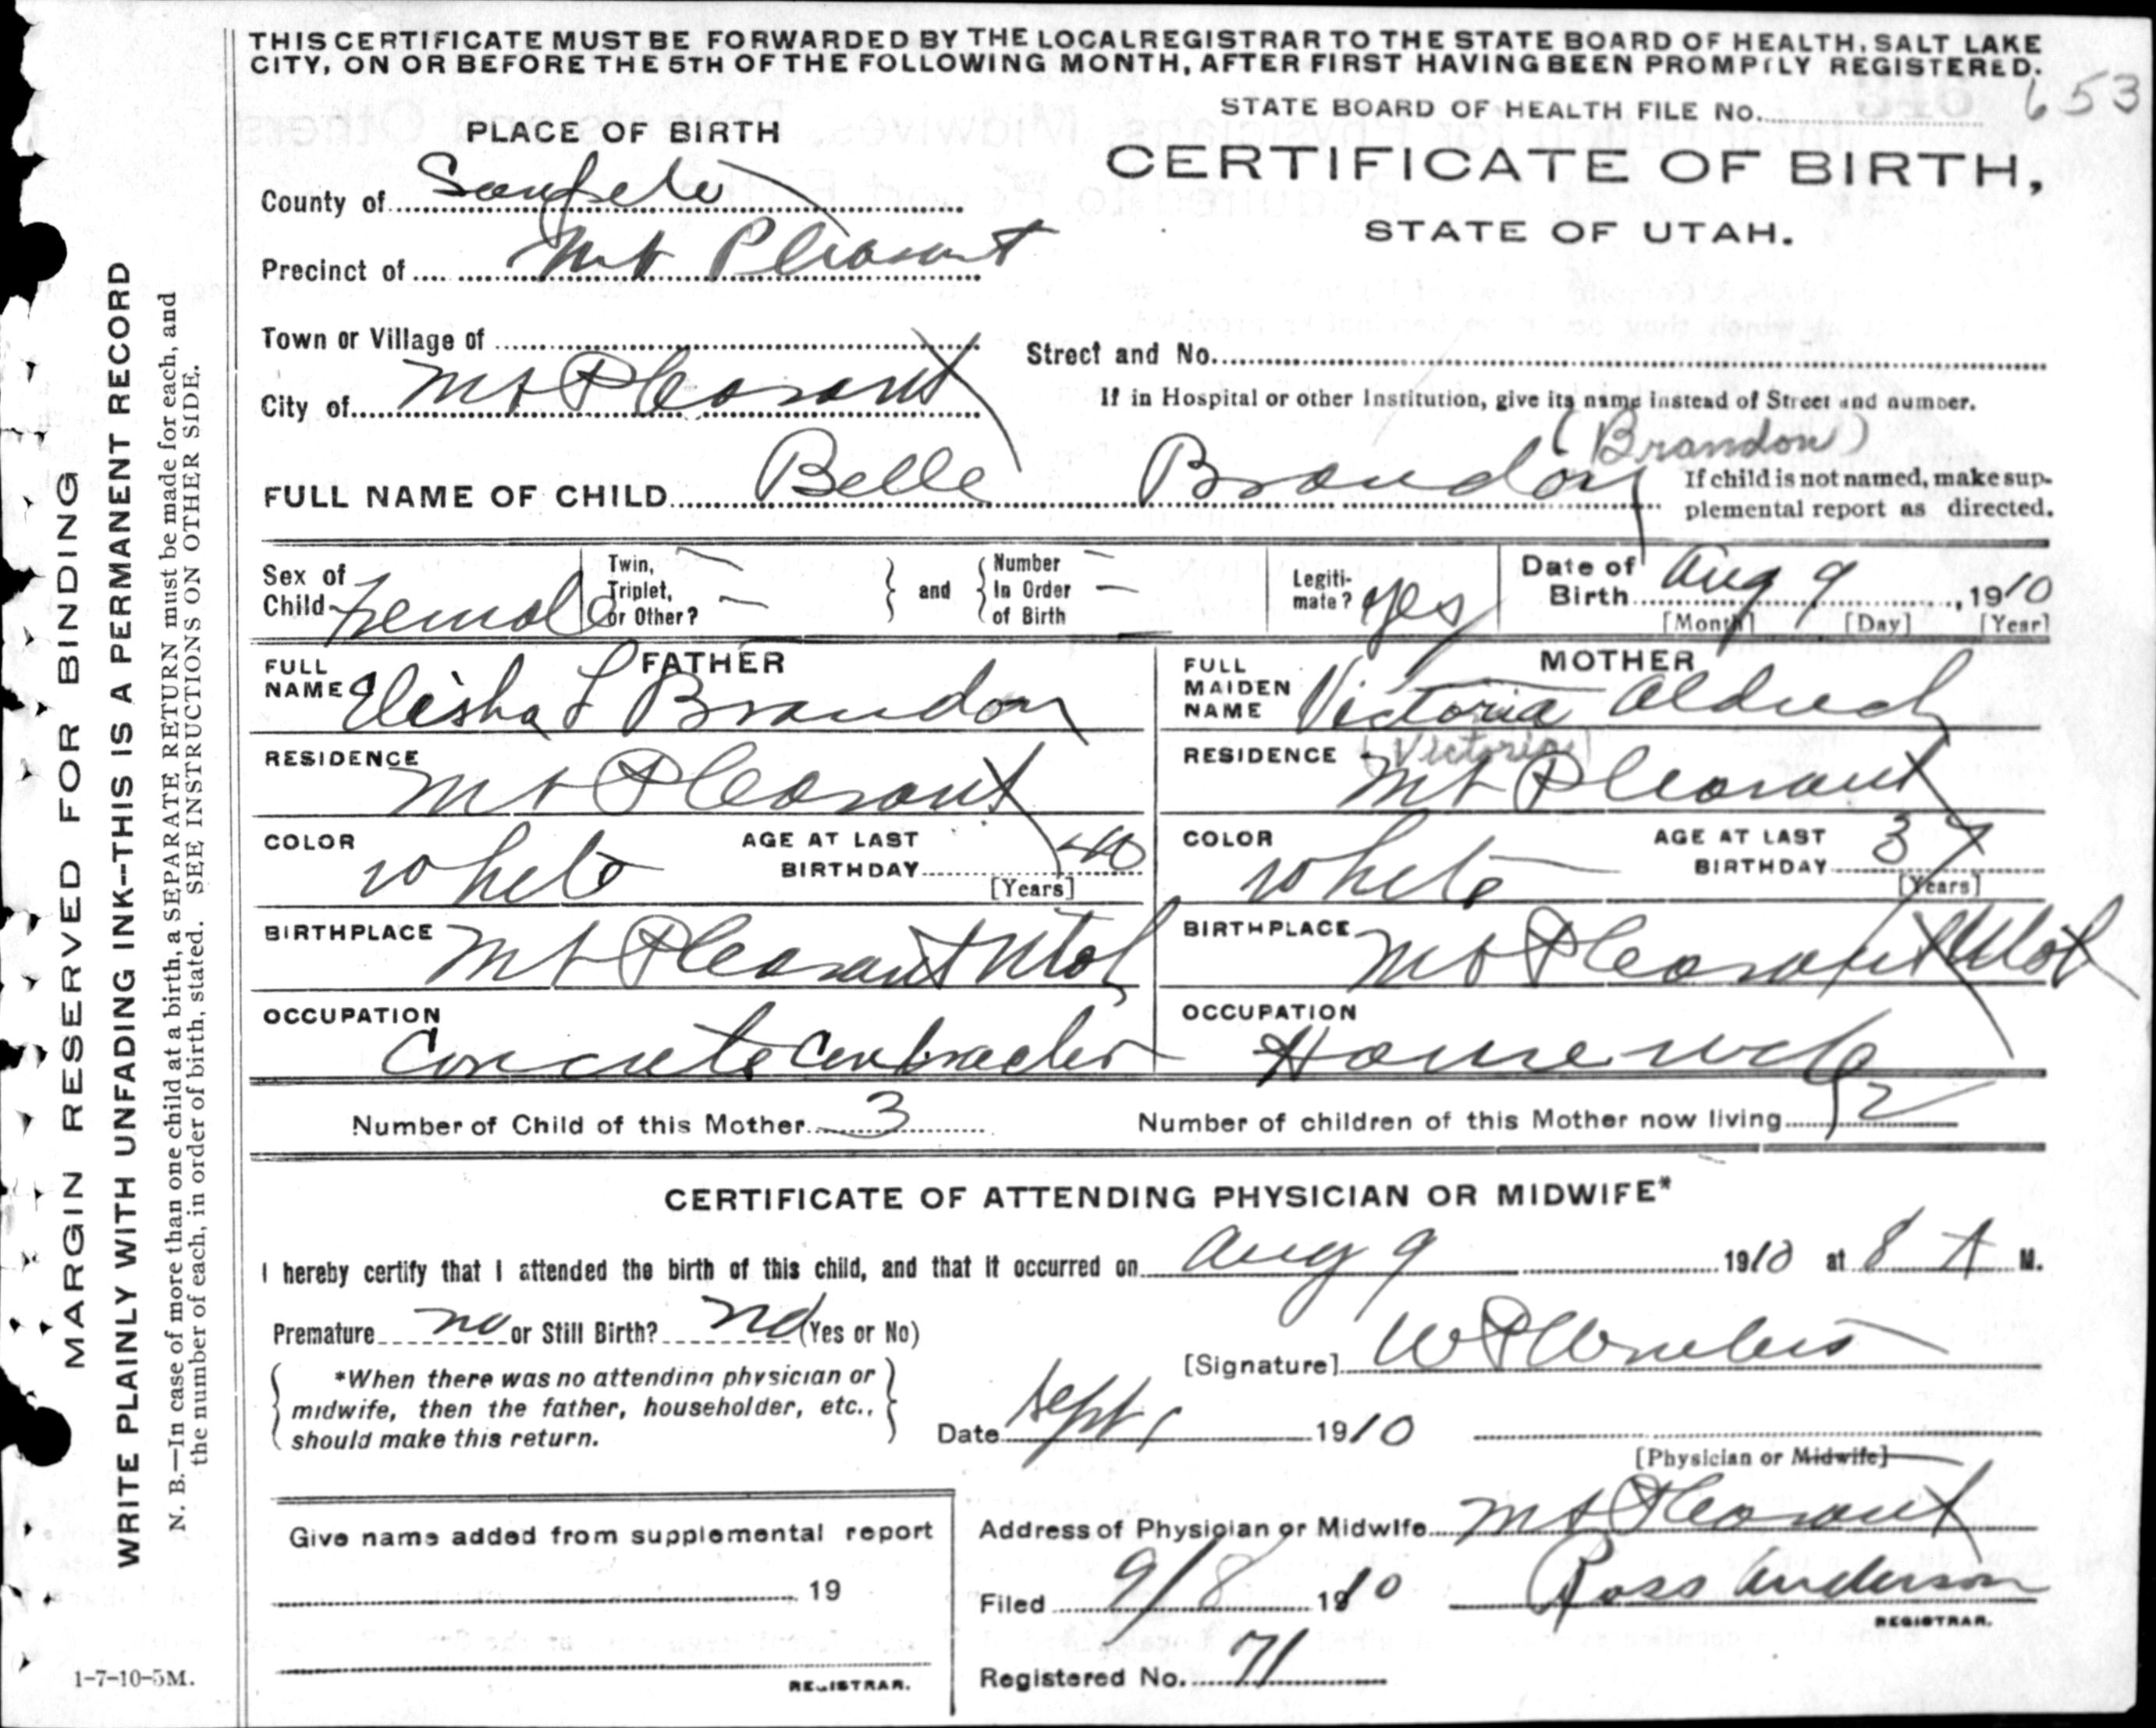 THIS CERTIFICATE MUST BE FORWARDED BY THE LOCAL REGISTRAR TO THE STATE BOARD OF HEALTH, SALT LAKE
CITY, ON OR BEFORE THE 5TH OF THE FOLLOWING MONTH, AFTER FIRST HAVING BEEN PROMPTLY REGISTERED.
STATE BOARD OF HEALTH FILE No. 653
PLACE OF BIRTH
CERTIFICATE OF BIRTH,
STATE OF UTAH.
County of Sanpete
Precinct of Mt Pleasant
Town or Village of
Street and No.
City of Mt Pleasant
If in Hospital or other Institution, give its name instead of Street and number.
(Brandon)
FULL NAME OF CHILD Belle Brandon
If child is not named, make sup-
plemental report as directed.
Sex of Child Female
Twin, Triplet, or Other? —
and
Number In Order of Birth —
Legiti-
mate? yes
Date of Birth Aug 9, 1910
[Month] [Day] [Year]
FATHER
FULL NAME Elisha L Brandon
RESIDENCE Mt Pleasant
COLOR White
AGE AT LAST BIRTHDAY 40
[Years]
BIRTHPLACE Mt Pleasant Utah
OCCUPATION Concrete Contractor
MOTHER
FULL MAIDEN NAME Victoria Aldrich
(Victoria)
RESIDENCE Mt Pleasant
COLOR White
AGE AT LAST BIRTHDAY 37
[Years]
BIRTHPLACE Mt Pleasant Utah
OCCUPATION Housewife
Number of Child of this Mother 3
Number of children of this Mother now living 2
CERTIFICATE OF ATTENDING PHYSICIAN OR MIDWIFE*
I hereby certify that I attended the birth of this child, and that it occurred on Aug 9 1910 at 8 A M.
Premature no or Still Birth? no (Yes or No)
*When there was no attending physician or
midwife, then the father, householder, etc.,
should make this return.
[Signature] W P
Date Sept 1 1910
[Physician or Midwife]
Give name added from supplemental report
19
REGISTRAR.
Address of Physician or Midwife Mt Pleasant
Filed 9/8 1910
Ross Anderson
REGISTRAR.
Registered No. 71
MARGIN RESERVED FOR BINDING
WRITE PLAINLY WITH UNFADING INK--THIS IS A PERMANENT RECORD
N. B.—In case of more than one child at a birth, a SEPARATE RETURN must be made for each, and
the number of each, in order of birth, stated. SEE INSTRUCTIONS ON OTHER SIDE.
1-7-10-5M.